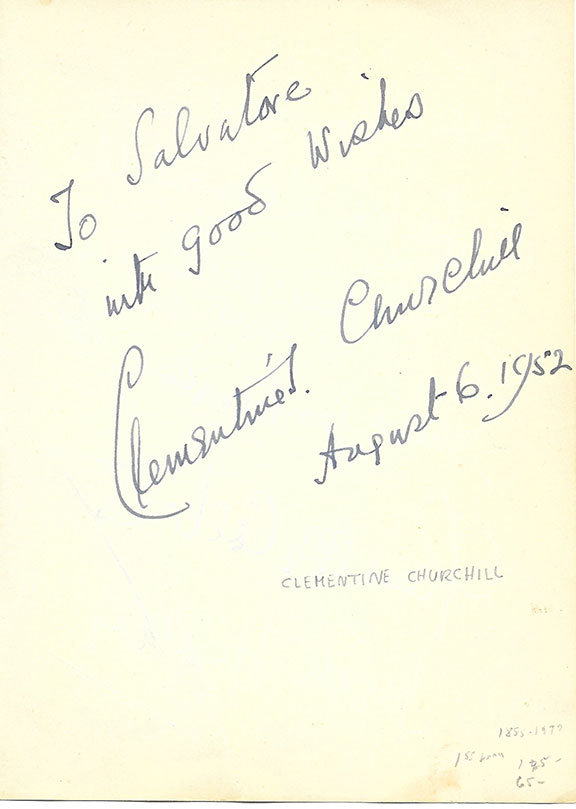 To Salvatore
with good Wishes
Clementine S. Churchill
August 6. 1952
CLEMENTINE CHURCHILL
65-